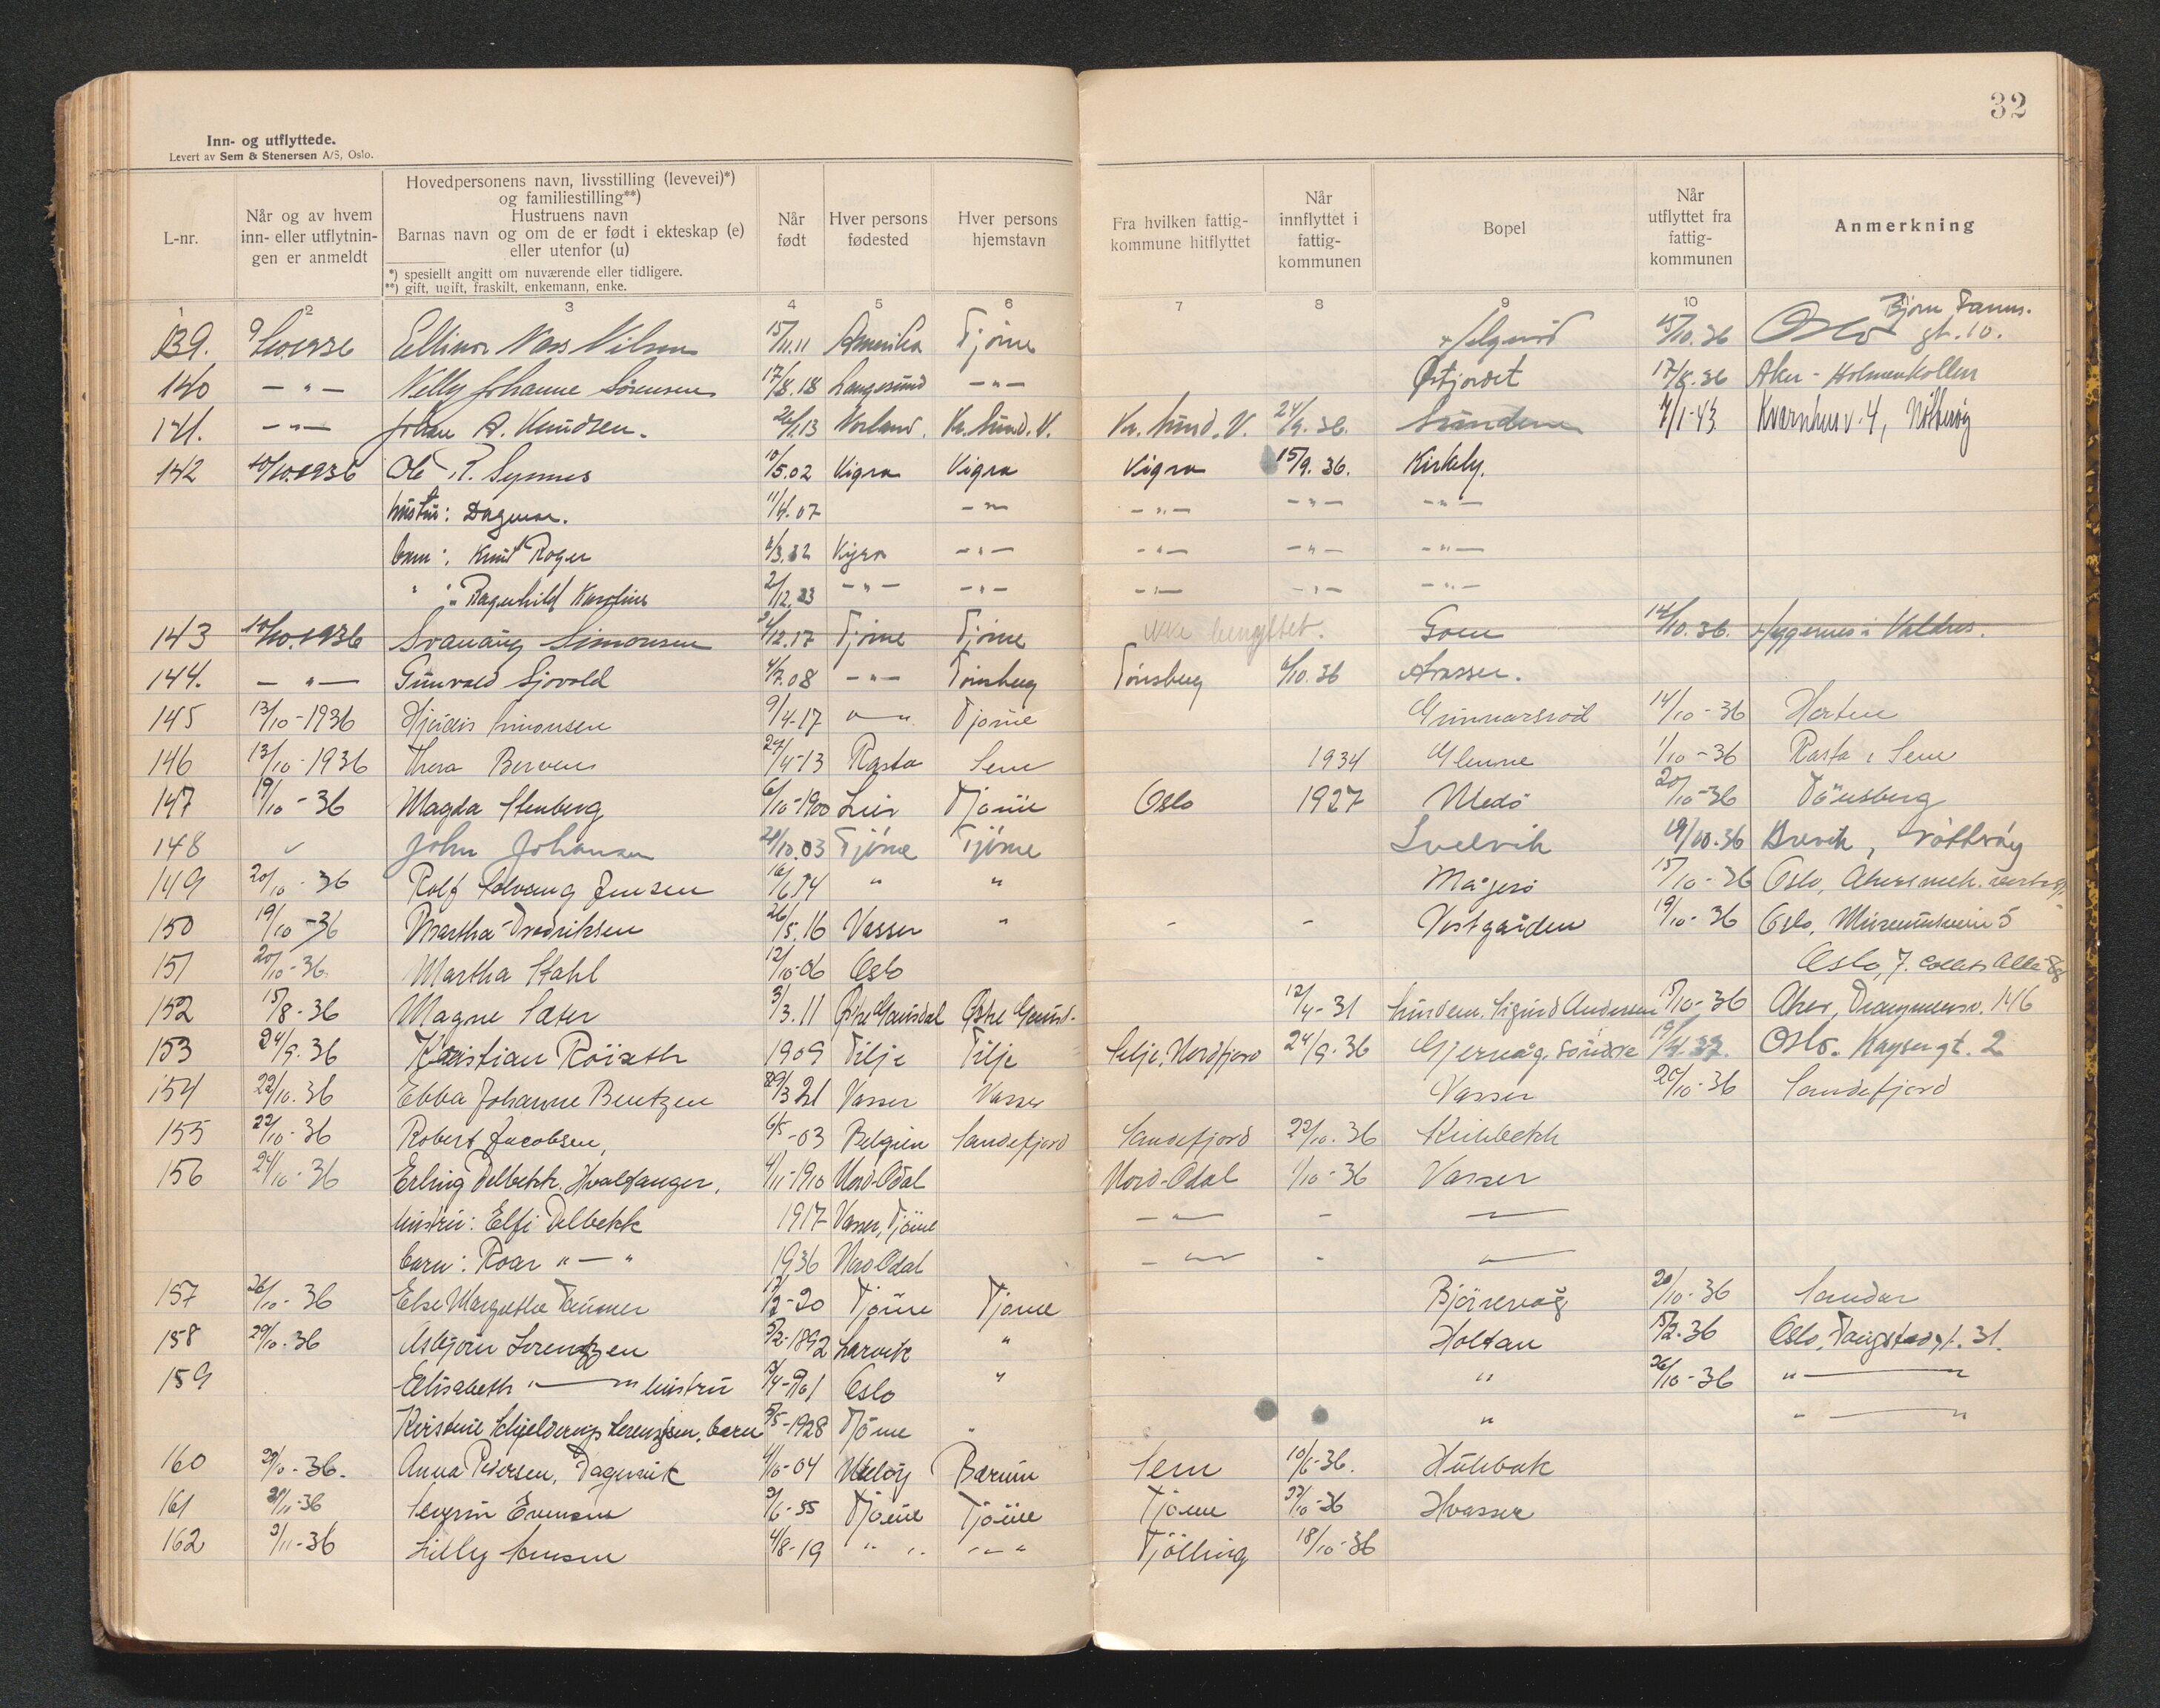 32
Inn- og utflyttede.
Levert av Sem & Stenersen A/S, Oslo.
L-nr.
Når og av hvem inn- eller utflytnin- gen er anmeldt
Hovedpersonens navn, livsstilling (levevei)*)
og familiestilling**)
Hustruens navn
Barnas navn og om de er født i ekteskap (e)
eller utenfor (u)
*) spesiellt angitt om nuværende eller tidligere.
**) gift, ugift, fraskilt, enkemann, enke.
Når født
Hver persons fødested
Hver persons hjemstavn
Fra hvilken fattig- kommune hitflyttet
Når innflyttet i fattig- kommunen
Bopel
Når utflyttet fra fattig- kommunen
Anmerkning
1 2 3 4 5 6 7 8 9 10
139. 9/10 1936 Ellinor Nass Nilsen 15/11.11 Amerika Tjöme 15/10.36 Oslo Bjørn Farms. gt. 10.
140 — " — Nelly Johanne Sörensen 17/8.18 Langesund — " — Østjordet 17/8.36 Aker - Holmenkollen
141. — " — Johan A. Knudsen. Kr. sund. V. Kr. sund. V. 24/9. 36. Sundene 7/1-43 Kvarnhusv. 4,
142 10/10.1936 Ole P. Synnes 10/5.02 Vigra Vigra Vigra 15/9. 36. Kirkely.
hustru: Dagmar. 11/6.07 — " — — " — — " — — " —
barn: Knut Roger 2/3.32 Vigra — " — — " — — " — — " —
" : Ragnhild Karoline 2/12.33 — " — — " — — " — — " — — " —
143 10/10.1936 Svanaug Simonsen 12.17 Tjöme Tjöme ikke benyttet. Goen 14/10.36. i Valdres.
144. — " — Gunvald Sjovold 4/7.08 — " — Tönsberg Tönsberg 6/10.36
145 13/10-1936 Hjördis Simonsen 9/4-17 " " Tjöme Gunnarsrød 14/10-36 Horten
146 13/10-1936 Thora Bervens 27/4-13 Rasta Sem 1934 Glenne 1/10-36 Rasta i Sem
147 19/10-36 Magda Stenberg 6/10-1900 Lier Tjöme Oslo 1927 Medö 20/10-36 Tönsberg
148 John Johansen 20/10.03 Tjöme Tjöme Svelvik 19/10.36 Brevik,
149 20/10-36 Rolf Solvang Jensen 16/6.14 " " Magerö 15/10-36 Oslo, Akers mek. verksted
150 19/10-36 Martha Fredriksen 26/5.16 Vasser " - - Vestgården 19/10-36 Oslo, Museumsveien 5
151 20/10-36. Martha Stahl 12/10-06 Oslo Oslo, J. Colletts Alle 88
152 15/8-36 Magne Sæter 3/3.11 Østre Gausdal Østre Gausd. 12/4-31 Sundene. Sigurd Andersen 15/10-36 Aker, Drammensv. 146
153 24/9.36 Kristian Röiseth 1909 Silje Silje Selje, Nordfjord 24/9-36 Gjervåg söndre 19/4.37. Oslo. Kaysergt. 2
154 22/10.36 Ebba Johanne Bentzen 29/3 21 Vasser Vasser Vasser 20/10-36 Sandefjord
155 22/10-36 Robert Jacobsen, 6/5-03 Belgien Sandefjord Sandefjord 22/10.36
156 24/10-36 Erling Delbekk. Hvalfanger. 4/11-1910 Nord-Odal Nord-Odal 1/10-36 Vasser
hustru: Elfi Delbekk 1917 Vasser, Tjöme — " — - —
barn: Roar " — " 1936 Nord Odal — " — - —
157 26/10-36 Else Margrethe 2-20 Tjöme Tjöme Bjönnevåg 20/10-36 Sandar
158 29/10.36 Asbjörn Lorentzen 5/2-1892 Larvik " Holtan 15/2.36 Oslo, gt. 31.
159 Elisabeth " — " hustru 4-1901 Oslo " " 26/10-36 " — "
Kirstine Schjelderup Lorentzen, barn 5-1928 Tjöme " " " — "
160 29/10-36. Anna Pedersen, 10-04 Bærum Sem 10/6-36.
161 2/11-36 Severin Evensen 2/6-55 Tjöme Tjöme Tjöme 27/10-36 Hvasser
162 2/11-36 Lilly Jensen 4/8-19 " " " — " Tjölling 18/10-36